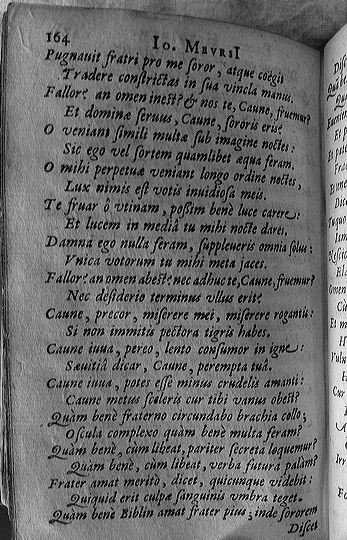 164 Io. MEVRSI
Pugnauit fratri pro me soror, atque coëgit
Tradere constrictas in sua vincla manus.
Fallor? an omen inest? & nos te, Caune, fruemur?
Et dominæ seruus, Caune, sororis eris?
O veniant simili multæ sub imagine noctes:
Sic ego vel sortem quamlibet æqua feram.
O mihi perpetuæ veniant longo ordine noctes,
Lux nimis est votis inuidiosa meis.
Te fruar ô vtinam, possim benè luce carere:
Et lucem in mediâ tu mihi nocte dares,
Damna ego nulla feram, suppleueris omnia solus:
Vnica votorum tu mihi meta jaces.
Fallor? an omen abest? nec adhuc te, Caune, fruemur?
Nec desiderio terminus vllus erit?
Caune, precor, miserere mei, miserere rogantis:
Si non immitis pectora tigris habes.
Caune iuua, pereo, lento consumor in igne:
Sæuitiâ dicar, Caune, perempta tuâ.
Caune iuua, potes esse minus crudelis amanti:
Caune metus sceleris cur tibi vanus obest?
Quàm benè fraterno circundabo brachia collo;
Oscula complexo quàm benè multa feram?
Quàm benè, cùm libeat, pariter secreta loquemur?
Quàm benè, cùm libeat, verba futura palàm?
Frater amat meritò, dicet, quicunque videbit:
Quiquid erit culpæ sanguinis vmbra teget.
Quàm benè Biblin amat frater pius; inde sororem
Discet